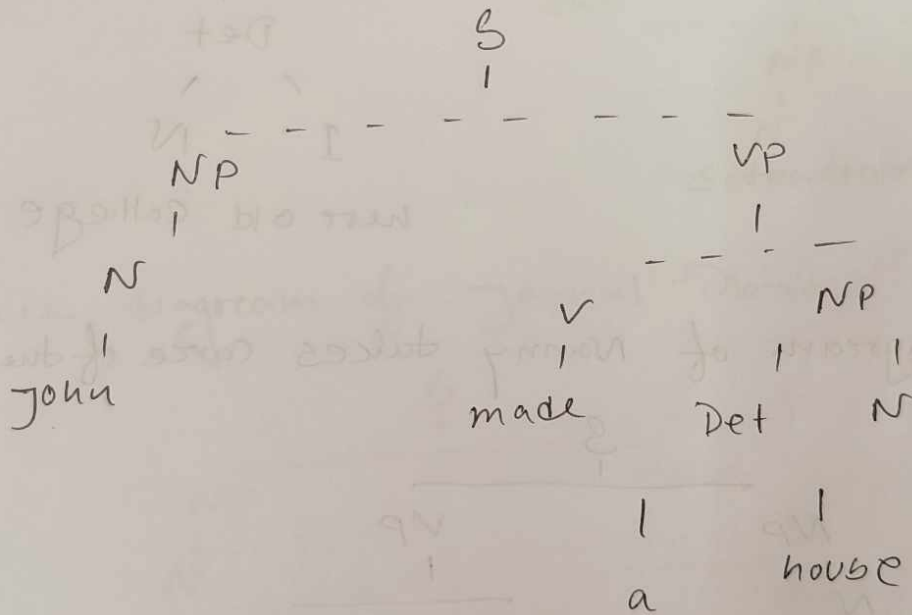 S
NP VP
N V NP
John made Det N
a house